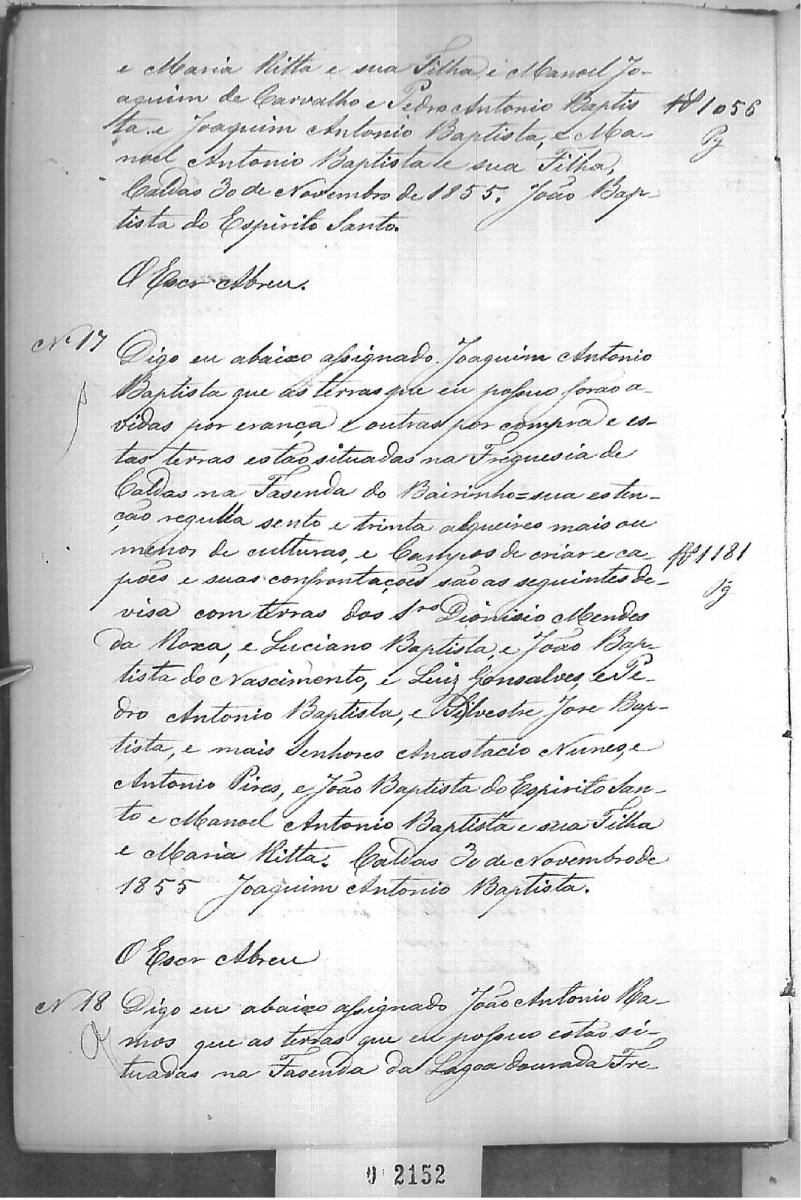 e Maria Ritta e sua Filha, e Manoel Jo-
aquim de Carvalho e Pedro Antonio Baptis
ta e Joaquim Antonio Baptista, e Ma-
noel Antonio Baptista e sua Filha,
Caldas 30 de Novembro de 1855. João Bap-
tista do Espirito Santo.
1056
Pg
O Escr Abreu.
N 17
Digo eu abaixo assignado Joaquim Antonio
Baptista que as terras que eu possuo forão a-
vidas por erança e outras por compra e es-
tas terras estão situadas na Freguesia de
Caldas na Fasenda do Bairinho = sua esten-
ção regulla sento e trinta alqueires mais ou
menos de culturas, e Campos de criar e ca-
pões e suas confrontações são as seguintes de-
visa com terras dos Sros Dionisio Mendes
da Roxa, e Luciano Baptista, e João Bap-
tista do Nascimento, e Luiz Gonsalves, e Pe-
dro Antonio Baptista, e Silvestre Jose Bap-
tista, e mais Senhores Anastacio Nunes, e
Antonio Pires, e João Baptista do Espirito San-
to e Manoel Antonio Baptista e sua Filha
e Maria Ritta. Caldas 30 de Novembro de
1855 Joaquim Antonio Baptista.
1181
Pg
O Escr Abreu
N 18
Digo eu abaixo assignado João Antonio Ra-
mos que as terras que eu possuo estão si-
tuadas na Fasenda da Lagoa dourada Fre-
0 2152